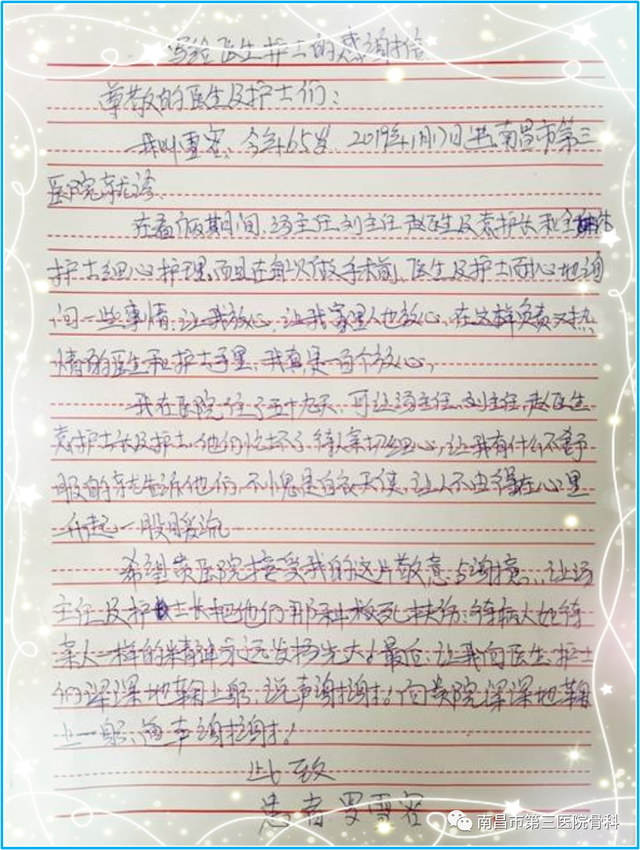 写给医生护士的感谢信
尊敬的医生及护士们:
我叫雪容,今年65岁,2019年1月17日进南昌市第三
医院就诊
在看病期间,汤主任刘主任赵医生及袁护长和全体
护士细心护理,而且在每次做手术前,医生及护士耐心地询
问一些事情,让我放心,让我家里人也放心,在这样负责又热
情的医生和护士手里,我真是一百个放心,
我在医院住了五十九天,可让汤主任,刘主任,赵医生
袁护士长及护士,他们忙坏了,待人亲切细心,让我有什么不舒
服的就告诉他们,不愧是白衣天使,让人不由得在心里
升起一股暖流
希望贵医院接受我的这片敬意与谢意,让汤
主任及护士长把他们那种救死扶伤:待病人如待
亲人一样的精神永远发扬光大!最后,让我向医生,护士
们深深地鞠上躬,说声谢谢!向贵院深深地鞠
上一躬,道声谢谢!
此致
患者罗雪容
南昌市第三医院骨科